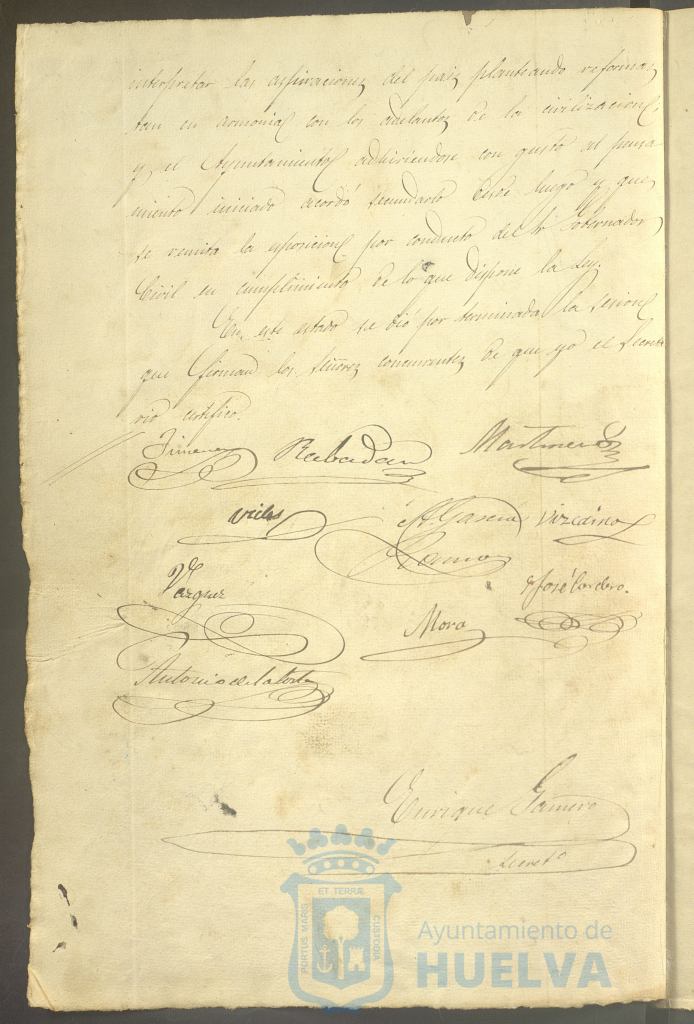 interpretar las aspiraciones del pais planteando reformas
tan en armonia con los adelantos de la civilizacion
y el Ayuntamiento adhiriendose con gusto al pensa
miento iniciado acordó secundarlo desde luego y que
se remita la esposicion por conducto del Sr Gobernador
Civil en cumplimiento de lo que dispone la Ley.
En este estado se dió por terminada la sesion
que firman los Señores concurrentes de que yo el Secreta
rio certifico.
Jimenez Rabadan Martinez
A. Garcia Vizcaino
Ramos
Vazquez
José Cordero.
Mora
Antonio de la Corte
Enrique Gamero
Secreto
ET TERRÆ
PORTUS MARIS
CUSTODIA
Ayuntamiento de
HUELVA